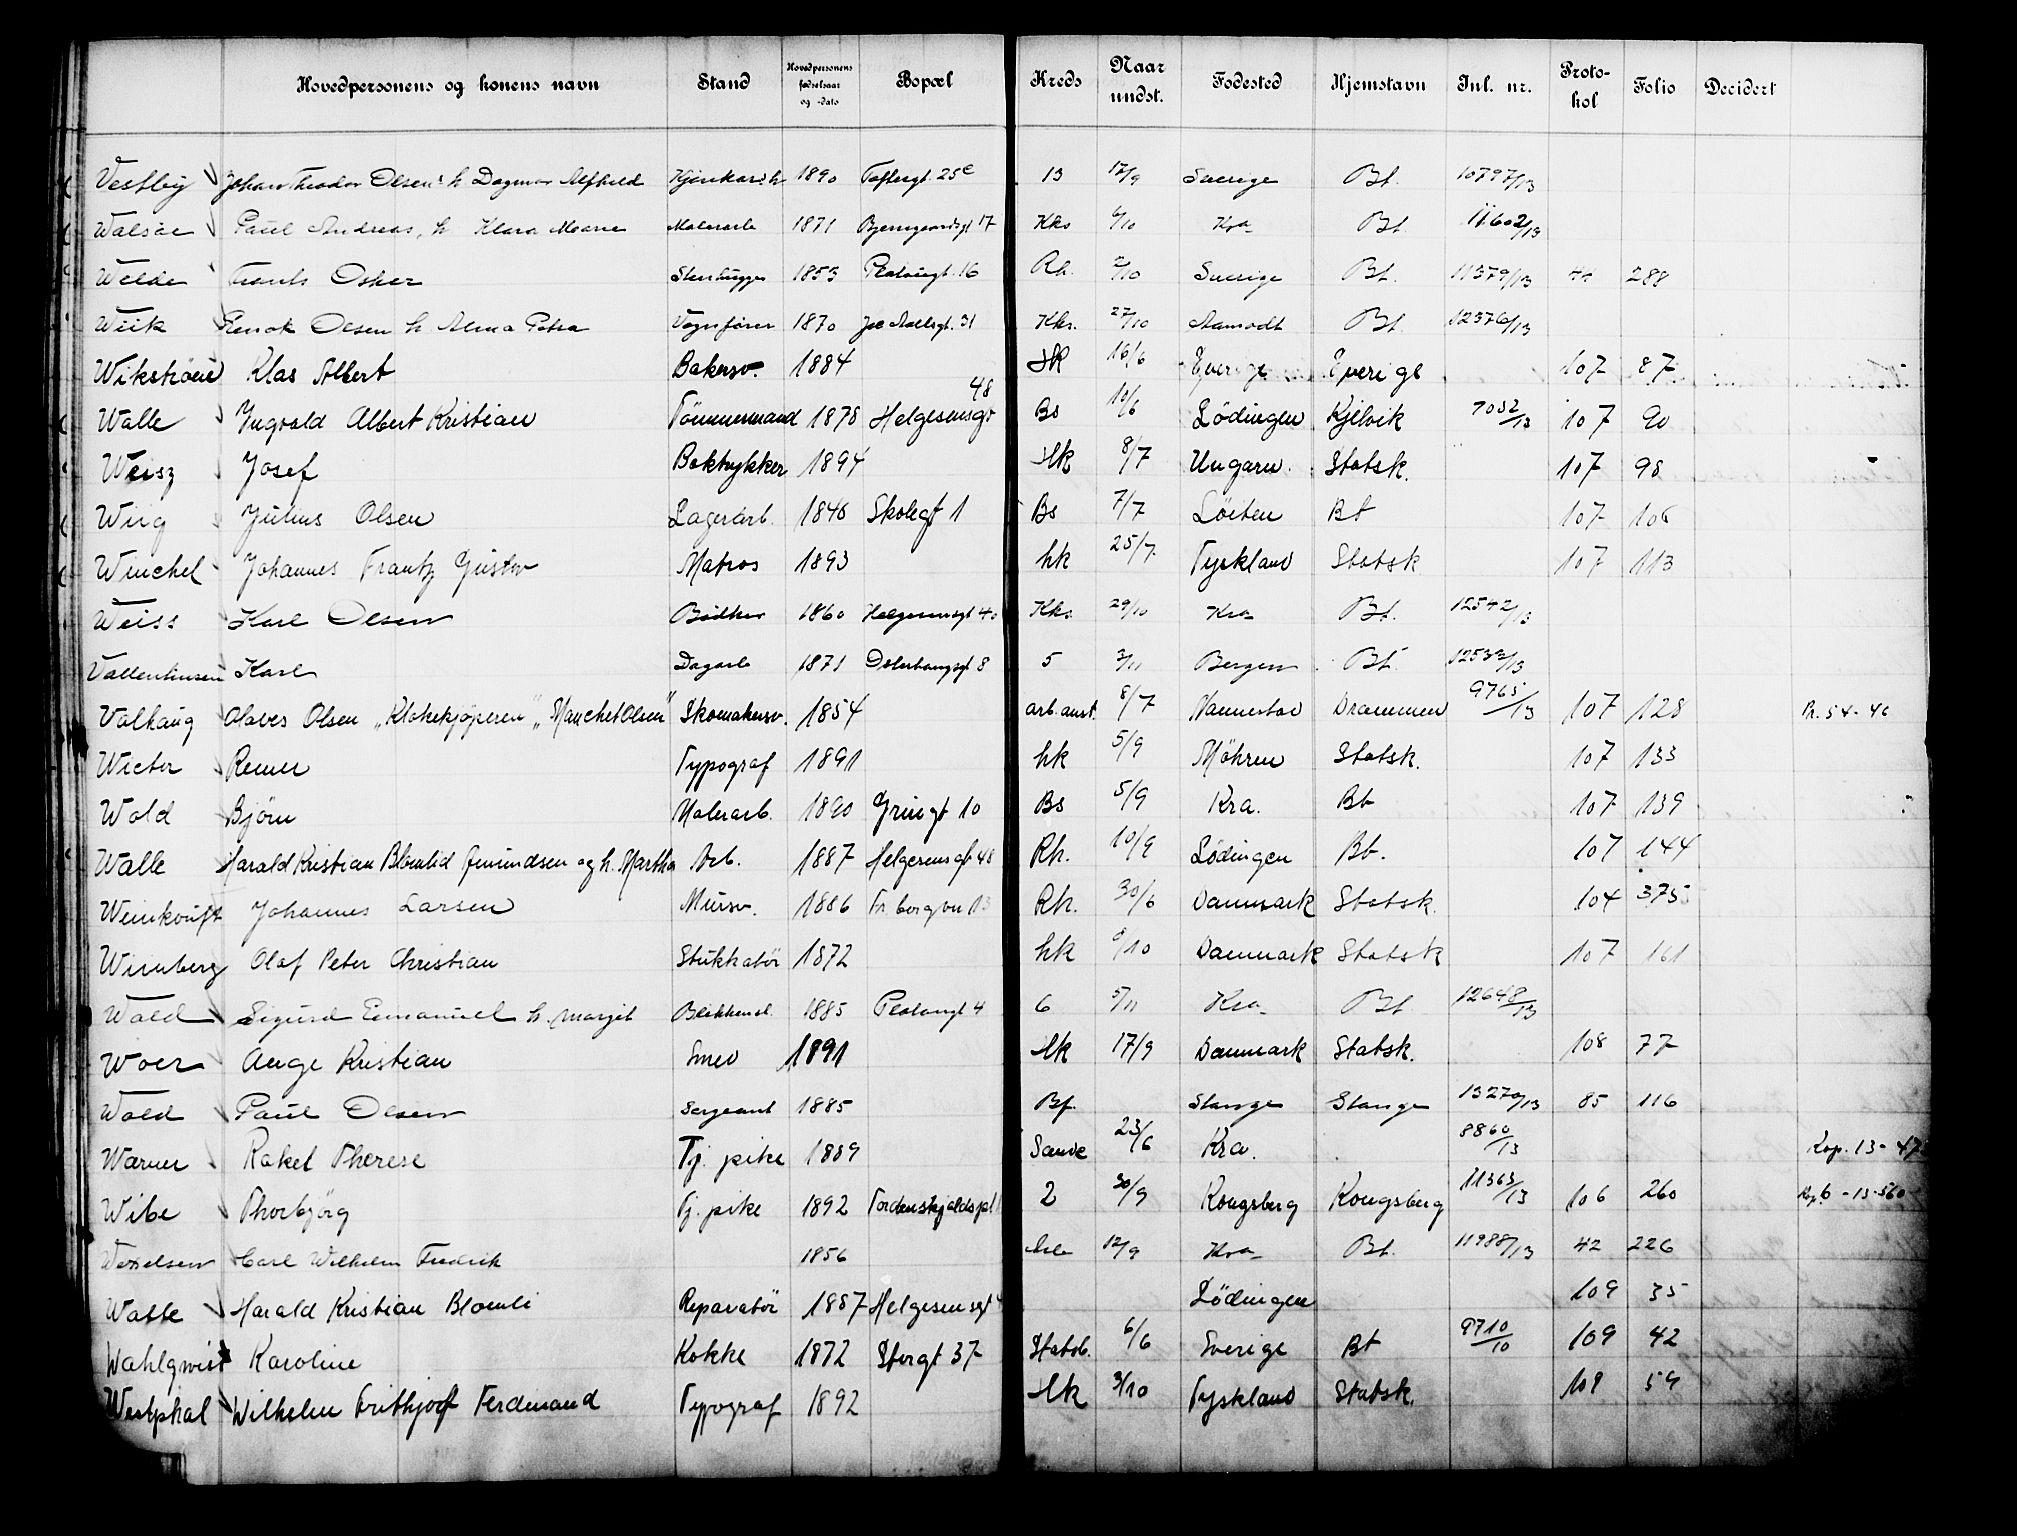 Hovedpersonens og konens navn Stand Hovedpersonens fødselsaar og -dato Bopæl Kreds Naar undst. Fødested Hjemstavn Inl. nr. Protokol Folio Decidert
Vestby Johan Theodor Olsen h Dagmar Alfhild 1890 Toftesgt. 25c 13 12/9 Sverige Bt. 10797/13
Walsøe Paul Andreas, h Klara Marie Malerarb 1871 17 Kks 6/10 Kra Bt. 11602/13
Welde Frants Oskar Stenhugger 1853 16 Rh. 2/10 Sverige Bt. 11379/13 288
Wiik Olsen h Alma Petra Vognfører 1870 31 Kks. 27/10 Bt. 12376/13
Wikstrøm Klas Albert Bakersv. 1884 Hk 16/6 Sverige Sverige 107 87
Walle Ingvald Albert Kristian Tømmermand 1878 Helgesensgt 48 Bs 10/6 Lödingen Kjelvik 7052/13 107 90
Weisz Josef Boktrykker 1894 Hk 8/7 Ungarn. Statsk. 107 98
Wiig Julius Olsen Lagerarb. 1846 Skolegt 1 Bs 7/7 Löiten Bt 107 106
Winchel Johannes Frantz Gustav Matros 1893 hk 25/7 Tyskland Statsk 107 113
Weiss Karl Olsen Bødker 1860 Helgesensgt 40 Kks. 29/10 Kra Bt. 12542/13
Karl Dagarb 1871 8 5 3/11 Bergen Bt. 12533/13
Valhaug Olaves Olsen „Klokekjøperen" „Manchet Olsen" Skomakersv. 1854 arb.anst. 8/7 Nannestad Drammen 9765/13 107 128 Pr. 54-46
Wictor Remer Typograf 1891 hk 5/9 Möhren Statsk. 107 133
Wold Bjørn Malerarb. 1890 Grüngt 10 Bs 5/9 Kra. Bt 107 139
Walle Harald Kristian Blomlid Amundsen og h. Martha Arb. 1887 Helgesensgt 48 Rh. 10/9 Lödingen Bt. 107 144
Weinkouft Johannes Larsen Mursv. 1886 13 Rh. 30/6 Danmark Statsk. 104 375
Wimberg Olaf Peter Christian Stukkatör 1872 hk 8/10 Danmark Statsk 107 161
Wold Sigurd Emanuel h. Margit 1885 4 6 5/11 Kra Bt 12648/13
Woer Aage Kristian Smed 1891 Hk 17/9 Danmark Statsk. 108 77
Wold Paul Olsen Sergeant 1885 Bf. Stange Stange 13270/13 85 116
Warner Rakel Therese Tj. pike 1889 Sande 23/6 Kra. 8860/13 Kop. 13-47
Wibe Thorbjörg Tj. pike 1892 Tordenskjoldspl 2 30/9 Kongsberg Kongsberg 11363/13 106 260 Kop 6-13-560
Wexelsen Carl Wilhelm Fredrik 1856 12/9 Kra Bt. 11988/13 42 226
Walle Harald Kristian Blomli Reparatör 1887 Helgesensgt Lödingen 109 35
Wahlqwist Karoline Kokke 1872 Storgt 37 Statsb. 6/6 Sverige Bt 9710/10 109 42
Westphal Wilhelm Frithjof Ferdinand Typograf 1892 Hk 3/10 Tyskland Statsk. 109 59